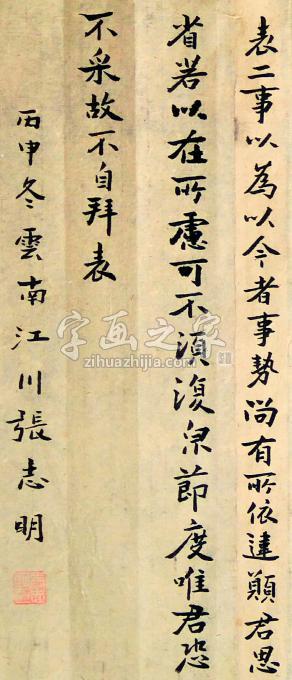 表二事以為以今者事勢尚有所依違願君思
省若以在所慮可不須復來節度唯君恐
不采故不自拜表
丙申冬雲南江川張志明
字画之家
zihuazhijia.com